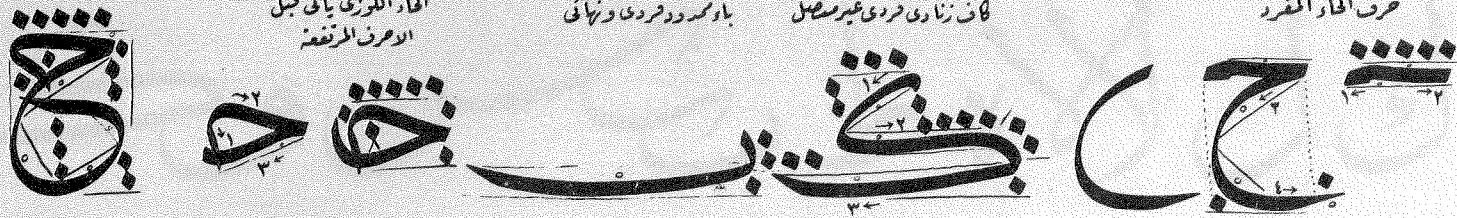 حرف الحاء المفرد
كاف زنادي فردي غير متصل
باء ممدود فردي ونهائي
الحاء اللوزي يأتي قبل
الاحرف المرتفعة